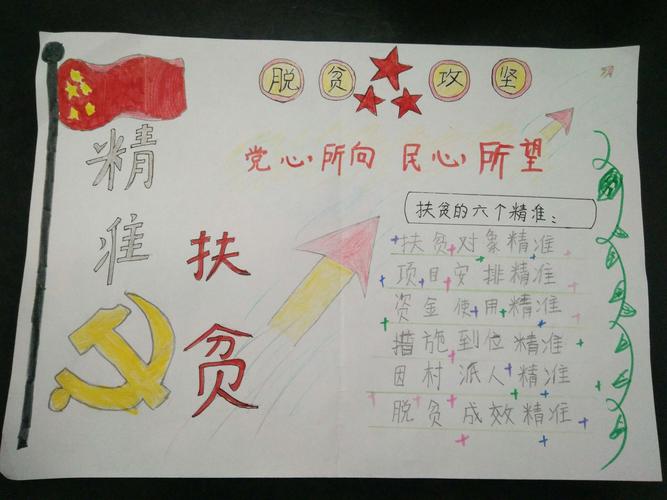 脱贫攻坚
党心所向 民心所望
精准
扶贫
扶贫的六个精准:
扶贫对象精准
项目安排精准
资金使用精准
措施到位精准
因村派人精准
脱贫成效精准